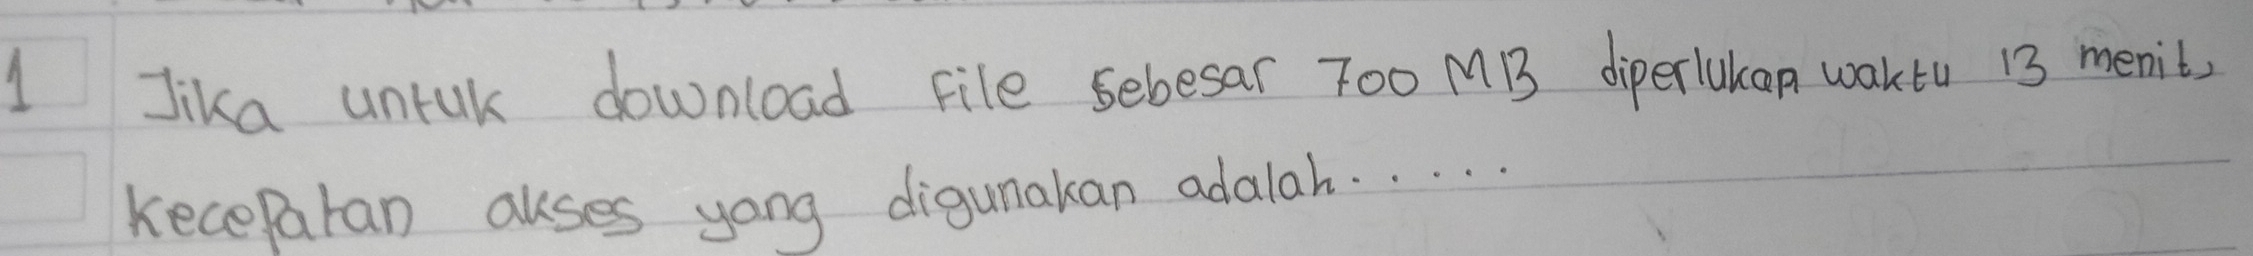 1 Jika untuk download file sebesar 700 MB diperlukan waktu 13 menit,
kecepatan akses yang digunakan adalah......